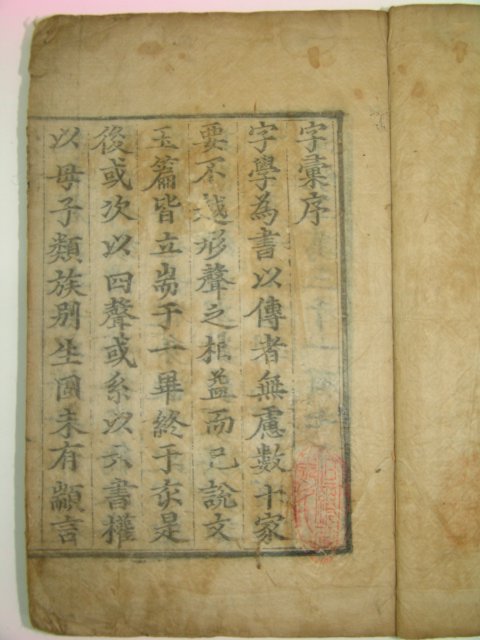 字彙序
字學為書以傳者無慮數十家
要不越形聲之相益而已說文
玉篇皆立耑于一畢終于亥是
後或次以四聲或系以六書權
以母子類族別生圖未有顓言